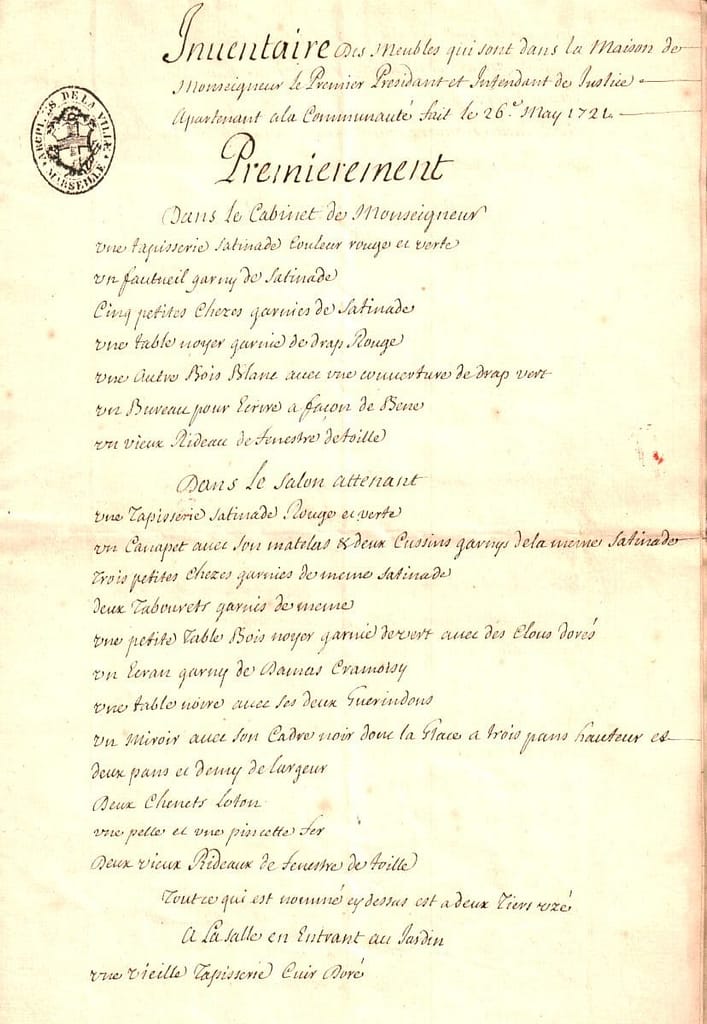 Inventaire Des Meubles qui sont dans la Maison de
Monseigneur le Premier Presidant et Intendant de Justice
Apartenant ala Communauté fait le 26e May 1721
ARCHIVES DE LA VILLE
MARSEILLE
Premierement
Dans le Cabinet de Monseigneur
vne tapisserie satinade Couleur rouge et verte
vn fauteuil garny de satinade
Cinq petites Chezes garnies de satinade
vne table noyer garnie de drap Rouge
vne Autre Bois Blanc avec vne couverture de drap vert
vn Bureau pour Ecrire a façon de Bene
vn vieux Rideau de fenestre de toille
Dans le salon attenant
vne Tapisserie satinade Rouge et verte
vn Canapet avec son matelas & deux Cussins garnys de la meme satinade
Trois petites Chezes garnies de meme satinade
deux Tabourets garnis de meme
vne petite Table Bois noyer garnie de vert avec des Clous dorés
vn Ecran garny de Damas Cramoisy
vne table noire avec ses deux Guerindons
vn miroir avec son Cadre noir dont la Glace a trois pans hauteur et
deux pans et demy de largeur
Deux Chenets Loton
vne pelle et vne pincette fer
Deux vieux Rideaux de fenestre de toille
Tout ce qui est nommé cy dessus est a deux Tiers vzé
A La salle en Entrant au Jardin
vne vieille Tapisserie Cuir Doré